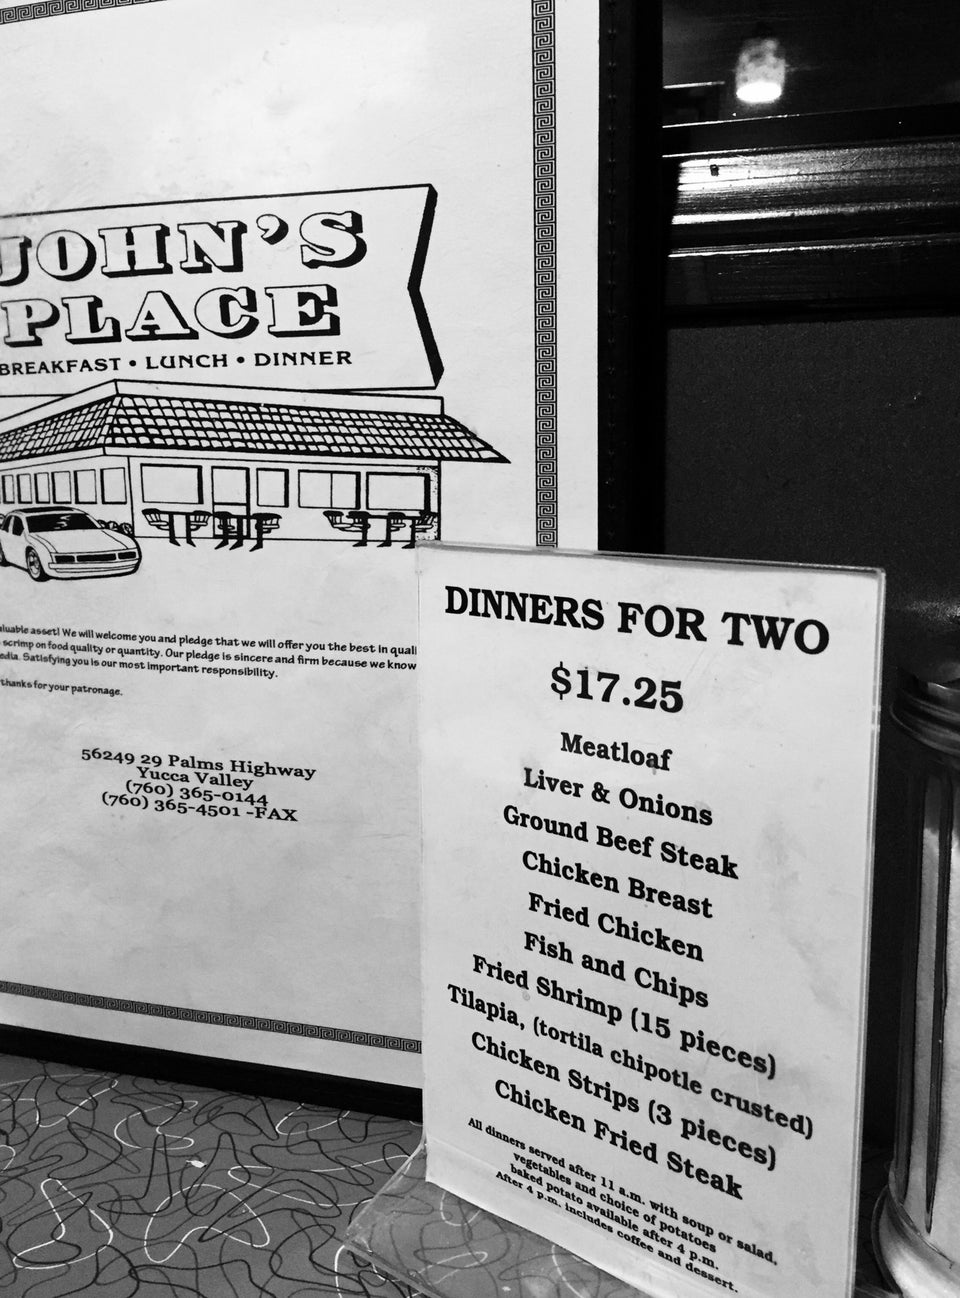 JOHN'S
PLACE
BREAKFAST • LUNCH • DINNER
asset! We will welcome you and pledge that we will offer you the best in
scrimp on food quality or quantity. Our pledge is sincere and firm because we know
Satisfying you is our most important responsibility.
thanks for your patronage.
56249 29 Palms Highway
Yucca Valley
(760) 365-0144
(760) 365-4501 -FAX
DINNERS FOR TWO
$17.25
Meatloaf
Liver & Onions
Ground Beef Steak
Chicken Breast
Fried Chicken
Fish and Chips
Fried Shrimp (15 pieces)
Tilapia, (tortila chipotle crusted)
Chicken Strips (3 pieces)
Chicken Fried Steak
All dinners served after 11 a.m. with soup or salad,
vegetables and choice of potatoes
baked potato available after 4 p.m.
After 4 p.m. includes coffee and dessert.